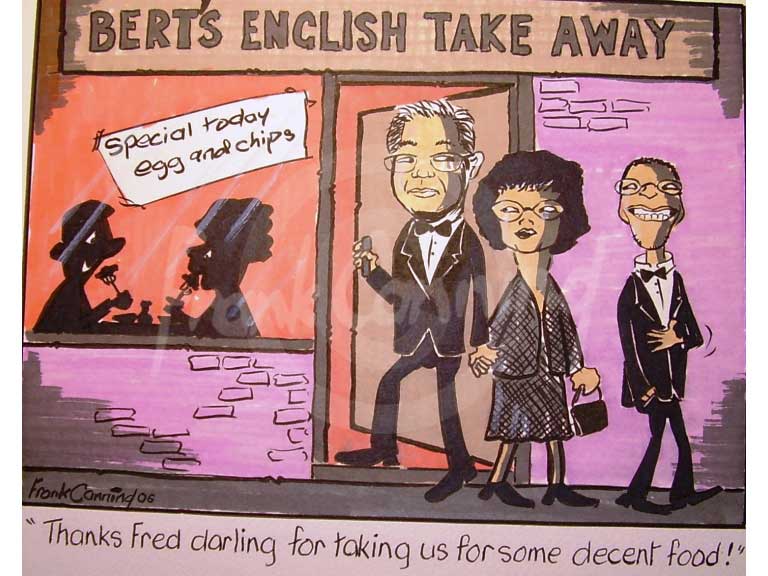 BERT'S ENGLISH TAKE AWAY
special today
egg and chips
Frank Canning 06
Frank Canning
"Thanks Fred darling for taking us for some decent food!"